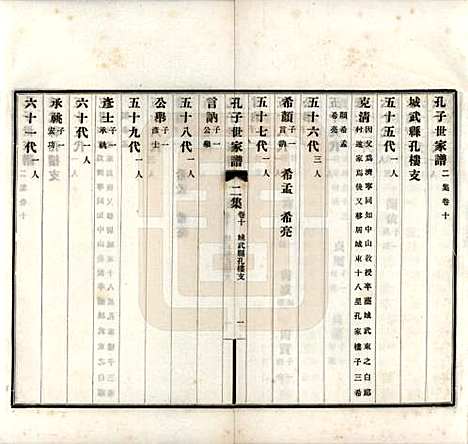 孔子世家譜 二集卷十
城武縣孔樓支
五十五代 一人
克清 因父爲濟寧同知中山教授卒葬城武東之白邱村遂家焉後又移居城東十八里孔家樓子三希顏希孟希亮
五十六代 三人
希顏 子一言訥 希孟 希亮
五十七代 一人
言訥 子一公學
孔子世家譜 二集 卷十 城武縣孔樓支 一
五十八代 一人
公學 子一彥士
五十九代 一人
彥士 子一承祧
六十代 一人
承祧 子一
六十一代 一人